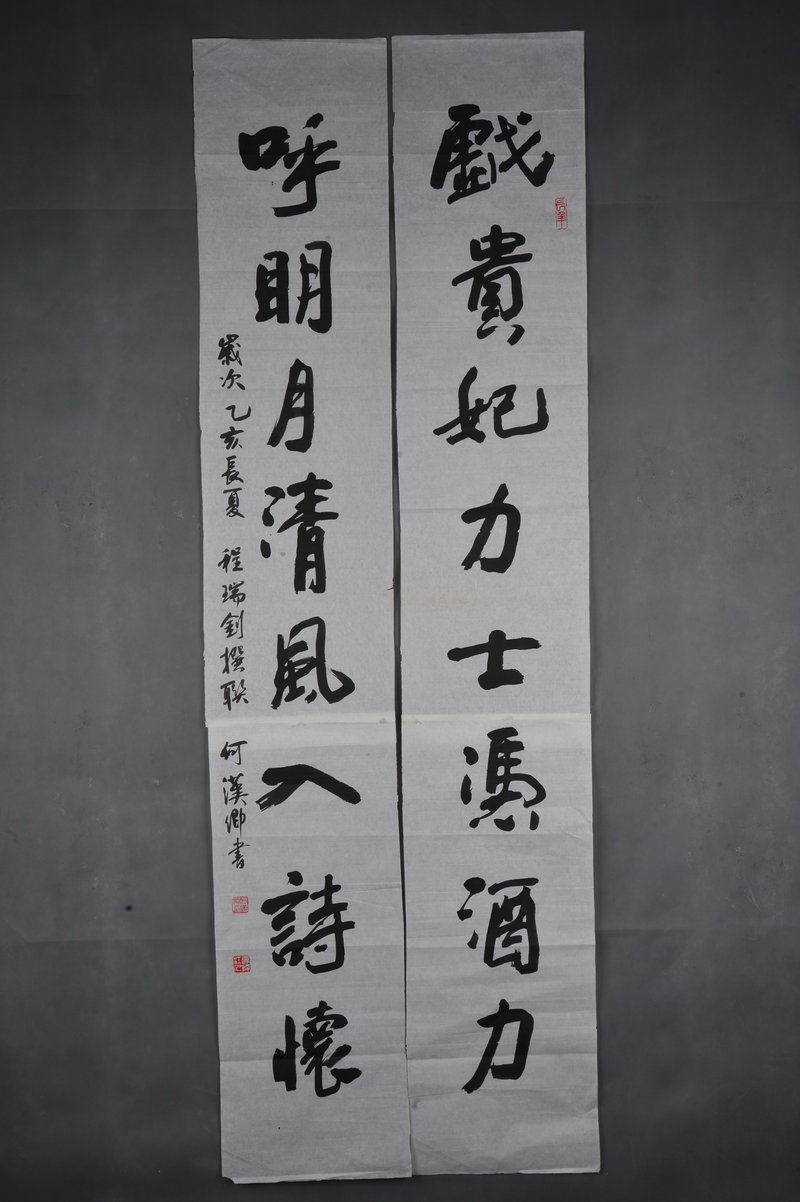 戲貴妃力士憑酒力
呼明月清風入詩懷
歲次乙亥長夏 程瑞釗撰聯 何漢卿書